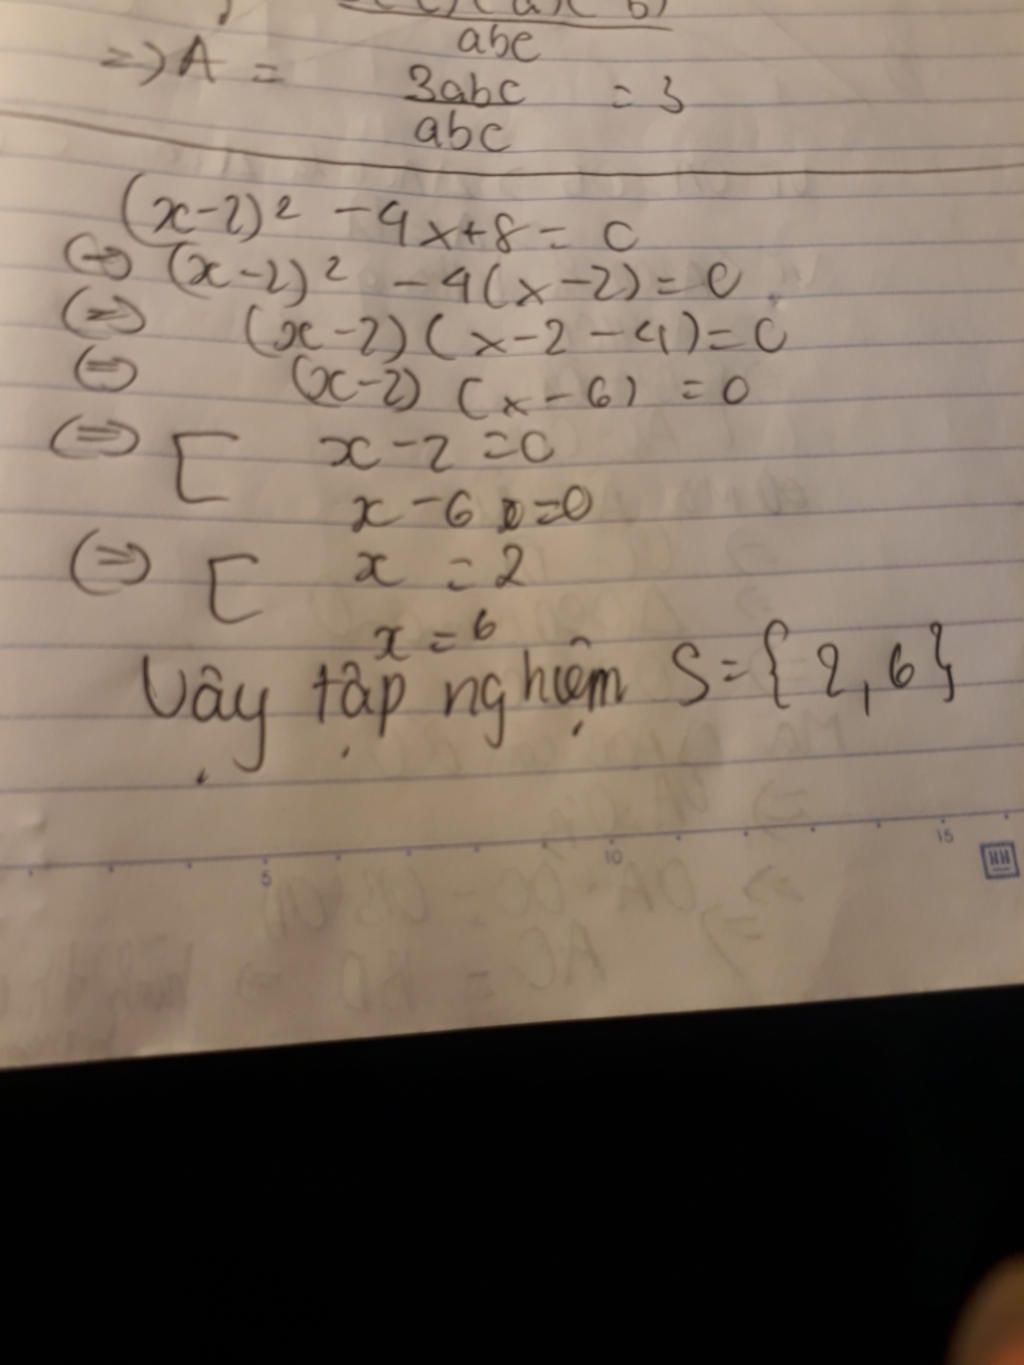 abc
=> A =
3abc = 3
abc
(x-2)² - 4x+8 = 0
(=) (x-2)² - 4(x-2) = 0
(=) (x-2)(x-2-4)=0
(=) (x-2) (x-6) = 0
(=) [ x-2 = 0
x-6 = 0
(=) [ x = 2
x = 6
Vậy tập nghiệm S={2,6}
5 10 15
HH